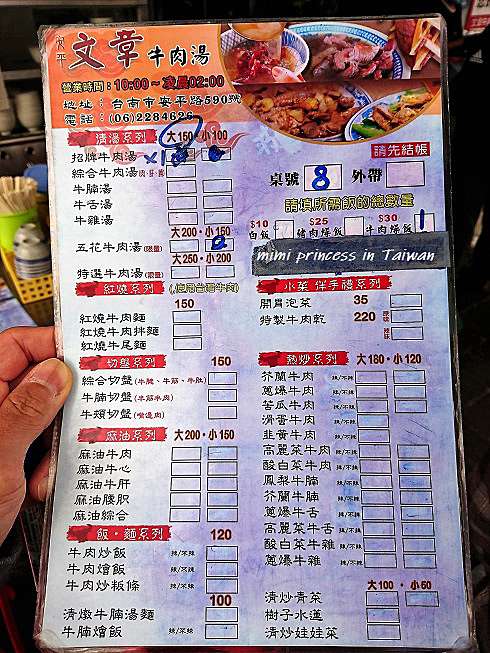 安平 文章牛肉湯
營業時間：10:00～凌晨02:00
地址：台南市安平路590號
電話：(06)2284626
清湯系列 大150 小100
招牌牛肉湯
綜合牛肉湯
牛腩湯
牛舌湯
牛雜湯
大200・小150
五花牛肉湯(限量)
大250・小200
特選牛肉湯(限量)
紅燒系列
150
紅燒牛肉麵
紅燒牛肉拌麵
紅燒牛尾麵
切盤系列 150
綜合切盤(牛腱、牛筋、牛肚)
牛腩切盤(半筋半肉)
牛頰切盤(嘴邊肉)
麻油系列 大200・小150
麻油牛肉
麻油牛心
麻油牛肝
麻油腰胘
麻油綜合
飯・麵系列 120
牛肉炒飯 辣/不辣
牛肉燴飯 辣/不辣
牛肉炒粄條 辣/不辣
100
清燉牛腩湯麵
牛腩燴飯 辣/不辣
請先結帳
桌號 8 外帶
請填所需飯的總數量
$10 $25 $30
白飯 豬肉燥飯 牛肉燥飯 1
mimi princess in Taiwan
小菜 伴手禮系列
開胃泡菜 35
特製牛肉乾 220 原味
辣味
熱炒系列 大180・小120
芥蘭牛肉 辣/不辣
蔥爆牛肉 辣/不辣
苦瓜牛肉 辣/不辣
滑蛋牛肉 辣/不辣
韭黃牛肉 辣/不辣
高麗菜牛肉 辣/不辣
酸白菜牛肉 辣/不辣
鳳梨牛腩 辣/不辣
芥蘭牛腩 辣/不辣
蔥爆牛舌 辣/不辣
高麗菜牛舌 辣/不辣
酸白菜牛雜 辣/不辣
蔥爆牛雜 辣/不辣
大100・小50
清炒青菜
樹子水蓮
清炒娃娃菜